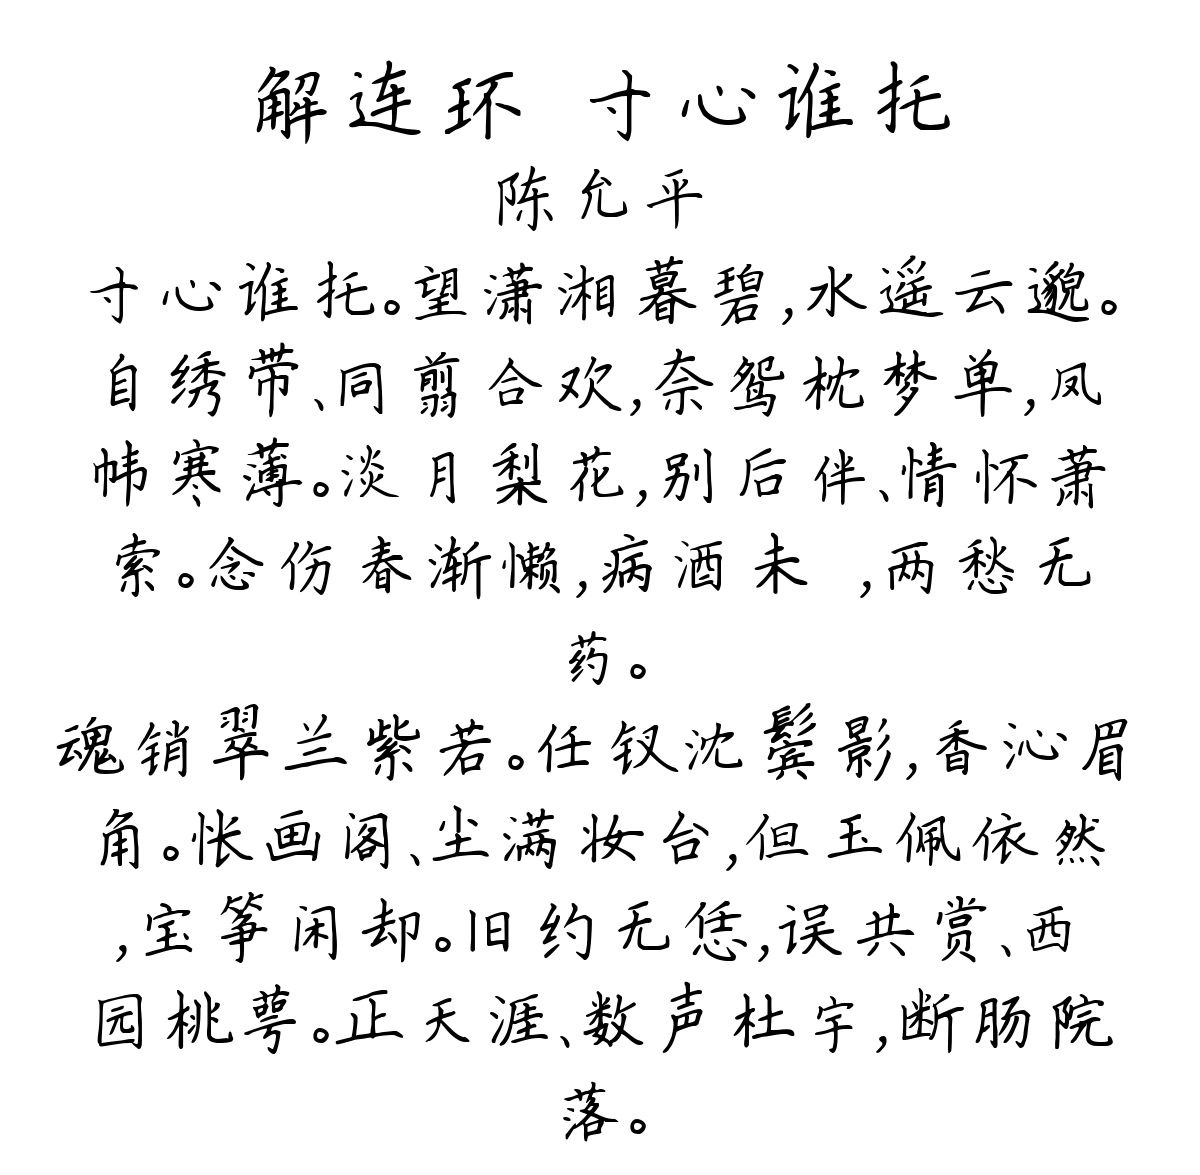 解连环 寸心谁托
陈允平
寸心谁托。望潇湘暮碧,水遥云邈。
自绣带、同剪合欢,奈鸳枕梦单,凤
帏寒薄。淡月梨花,别后伴、情怀萧
索。念伤春渐懒,病酒未 ,两愁无
药。
魂销翠兰紫若。任钗沈鬓影,香沁眉
角。怅画阁、尘满妆台,但玉佩依然
,宝筝闲却。旧约无恁,误共赏、西
园桃萼。正天涯、数声杜宇,断肠院
落。